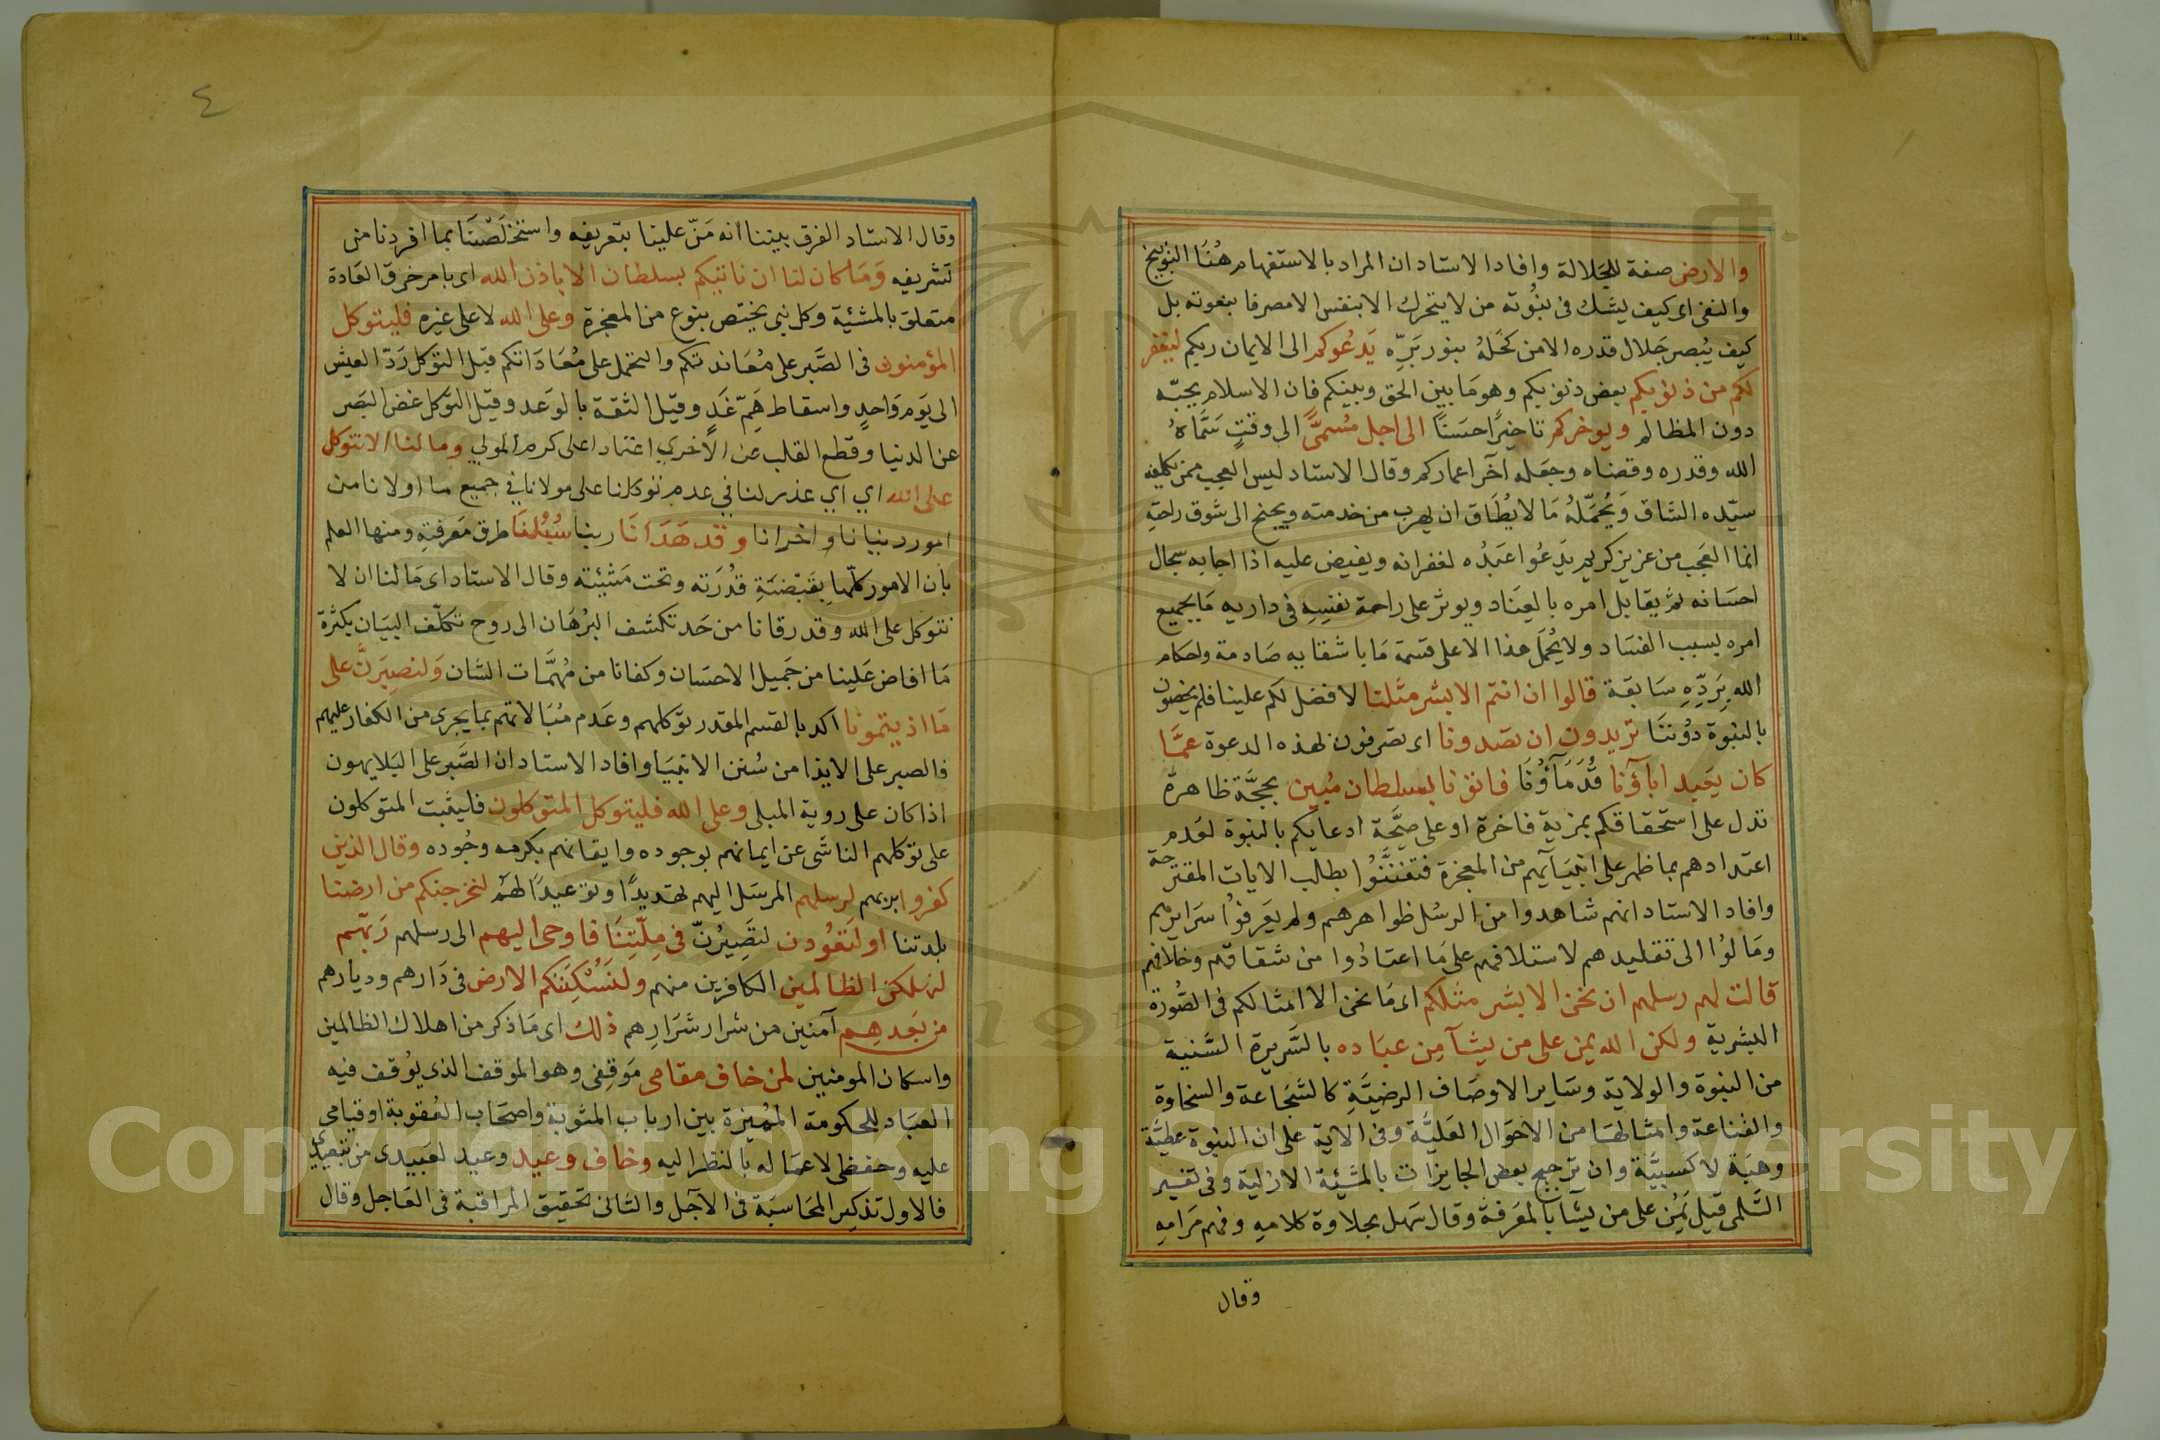 والارض صفة للجلالة وافاد الاستاد ان المراد بالاستفهام هُنَا التوبيخ
والنفى اى كيف يشك فى نبُوته من لا يتحرك الا بنفس الا مصرفا بنعوته بل
كيف يُبصر جَلال قدره الا من كحَلهُ بنور بَرِّه يَدعُوكم الى الايمان ربكم ليغفر
لكم من ذنوبكم بعض ذنوبكم وهو مَا بين الحق وبينكم فان الاسلام يجبّه
دون المظالم ويوخركم تاخيرًا حسَنًا الى اجل مُسمىًّ الى وقتٍ سَمَّاهُ
الله وقدره وقضاه وجعَله آخر اعماركم وقال الاستاد ليس العجب ممن يكلفه
سيّده الشاق وَيُحمِّلهُ مَا لا يُطَاق ان يهرب من خدمته ويجنح الى شوق راحتهِ
انما العَجب من عزيز كريم يَدعُوا عَبدُه لغفرانه ويفيض عليه اذا اجابه سجال
احسَانه ثم يقابل امره بالعِنَاد ويوثر على راحمة نفسِهِ فى داريه مَا يجميع
امره بسبب الفسَاد ولا يُحمَل هذا الا على قسمة مَا باشقابه صَادمة واحكام
الله بِرَدِّهِ سَابقة قالوا ان انتم الا بشر مثلنا لا فضل لكم علينا فلم يخصون
بالنبوة دوُننَا تريدون ان تصَدونا اى تصَرفون لهذه الدعوة عمَّا
كان يعَبد اباؤنا قُدَمَآؤُنَا فاتونا بسلطان مُبين بحجَّة ظاهرة
تدل على استحقاقكم بمزية فاخرة او على صِحَّة ادعايكم بالنبوة لعَدم
اعتدادهم بما ظهر على انبيَآئهم من المعجزة فتفننَّوُا بطلب الايات المقترحة
وافاد الاستاد انهم شاهدوا من الرسُل ظواهرهم ولم يَعَرفوُا سَرايرهم
ومَالوُا الى تقليدهم لاسلافهم على مَا اعتادُوا من شقاقهم وخلافهم
قالت لهم رسلهم ان نحن الا بشر مثلكم اى مَا نحن الا امثالكم فى الصُّورة
البشرية ولكن الله يمن على من يشآ من عبَاده بالسَّريرة السَّنية
من النبوة والولاية وسَاير الاوصَاف الرضيَّةِ كالشجَاعة والسخاوة
والقناعة وامثالهَا من الاحوَال العَليَّة وفى الاية على ان النبوة عطيَّة
وهبَة لا كسبيَّة وان ترجيح بعض الجايزات بالمشيَّة الازلية وفى تفسير
السُّلمى قيل يَمُن على من يشآ بالمعَرفة وقال سَهل بحلاوة كلامهِ وفهم مَرامهِ
وقال
٤
وقال الاستاد الفرق بيننا انه مَنّ علينا بتعريفه واستخلَصْنَا بما افردنا من
تشريفه وَمَا كان لنا ان ناتيكم بسلطان الا باذن الله اى بامر خرق العَادة
متعلق بالمشيّة وكل نبى يختص بنوع من المعجزة وعلى الله لا على غيره فليتوكل
المؤمنون فى الصَّبر على مُعَاندتكم والتحمل على مُعَادَاتكم قيل التوكل رَدّ العيش
الى يَوم وَاحدٍ واسقاط هَمِّ غَدٍ وقيل الثقة بالوَعد وقيل التوَكل غض البَصَر
عن الدنيا وقطع القلب عن الأخرى اعتمادا على كرم المولي وما لنا الا نتوكل
على الله اي اي عذر لنا في عدم توكلنا على مولانا في جميع ما اولانا من
امور دنيانا واخرانا وقد هَدَانَا ربنا سُبُلَنَا طرق مَعرفتهِ ومنها العلم
بان الامور كلّها بقَبْضَةِ قدُرَته وتحت مَشيْئته وقال الاستاد اى مَا لنا ان لا
نتوكل على الله وقد رقانا من حَد تكشف البرُهَان الى روح تكلّف البيَان بكثرة
مَا افاض عَلينا من جَميل الاحسَان وكفانا من مُهمَّات الشان وَلنصِبرَنَّ على
مَا اذيتمونا اكد بالقسم المقدر توَكلهم وعَدم مُبَالاتهم بما يجرى من الكفار عليهم
فالصبر على الايذا من سُنن الانبيَا وافاد الاستاد ان الصَّبر على البَلا يهون
اذا كان على روية المبلى وعلى الله فليتوكل المتوكلون فليثبت المتوكلون
على توَكلهم الناشى عن ايمانهم بوجوده وايقانهم بكرمه وجُوده وقال الذين
كفروا بربهم لرسلهم المرسَل اليهم تهديدًا وتوعيدًا لهمْ لنخرجنكم من ارضنا
بلدتنا او لتعُودن لتصِيرُنّ فى مِلّتِنَا فاوحى اليهم الى رسلهم رَبّهم
لنهلكن الظالمين الكافرين منهم ولنَسُكنَنكم الارض فى دَارهم وديارهم
من بَعدهِم آمنين من شرار شرَارِهم ذلك اى مَا ذكر من اهلاك الظالمين
واسكان المومنين لمن خاف مقامى مَوَقِفى وهو الموقف الذى يوُقف فيه
العبَاد للحكومة المميزة بين ارباب المثوبة واصحَاب العُقوبة او قيامى
عليه وحفظى لاعمَاله بالنظر اليه وخاف وعيد وعيد لعَبيدى من تبعيدى
فالاول تذكير المحَاسبَة فى الآجل والثانى تحَقيق المراقبة فى العَاجل وقال
Copyright © King Saud University